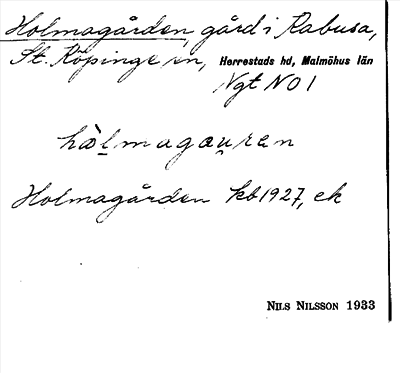 Holmagården, gård i Kabusa,
St. Köpinge sn, Herrestads hd, Malmöhus län
Ngt NO 1
hòlmagau̯ren
Holmagården kb 1927, ek
NILS NILSSON 1933